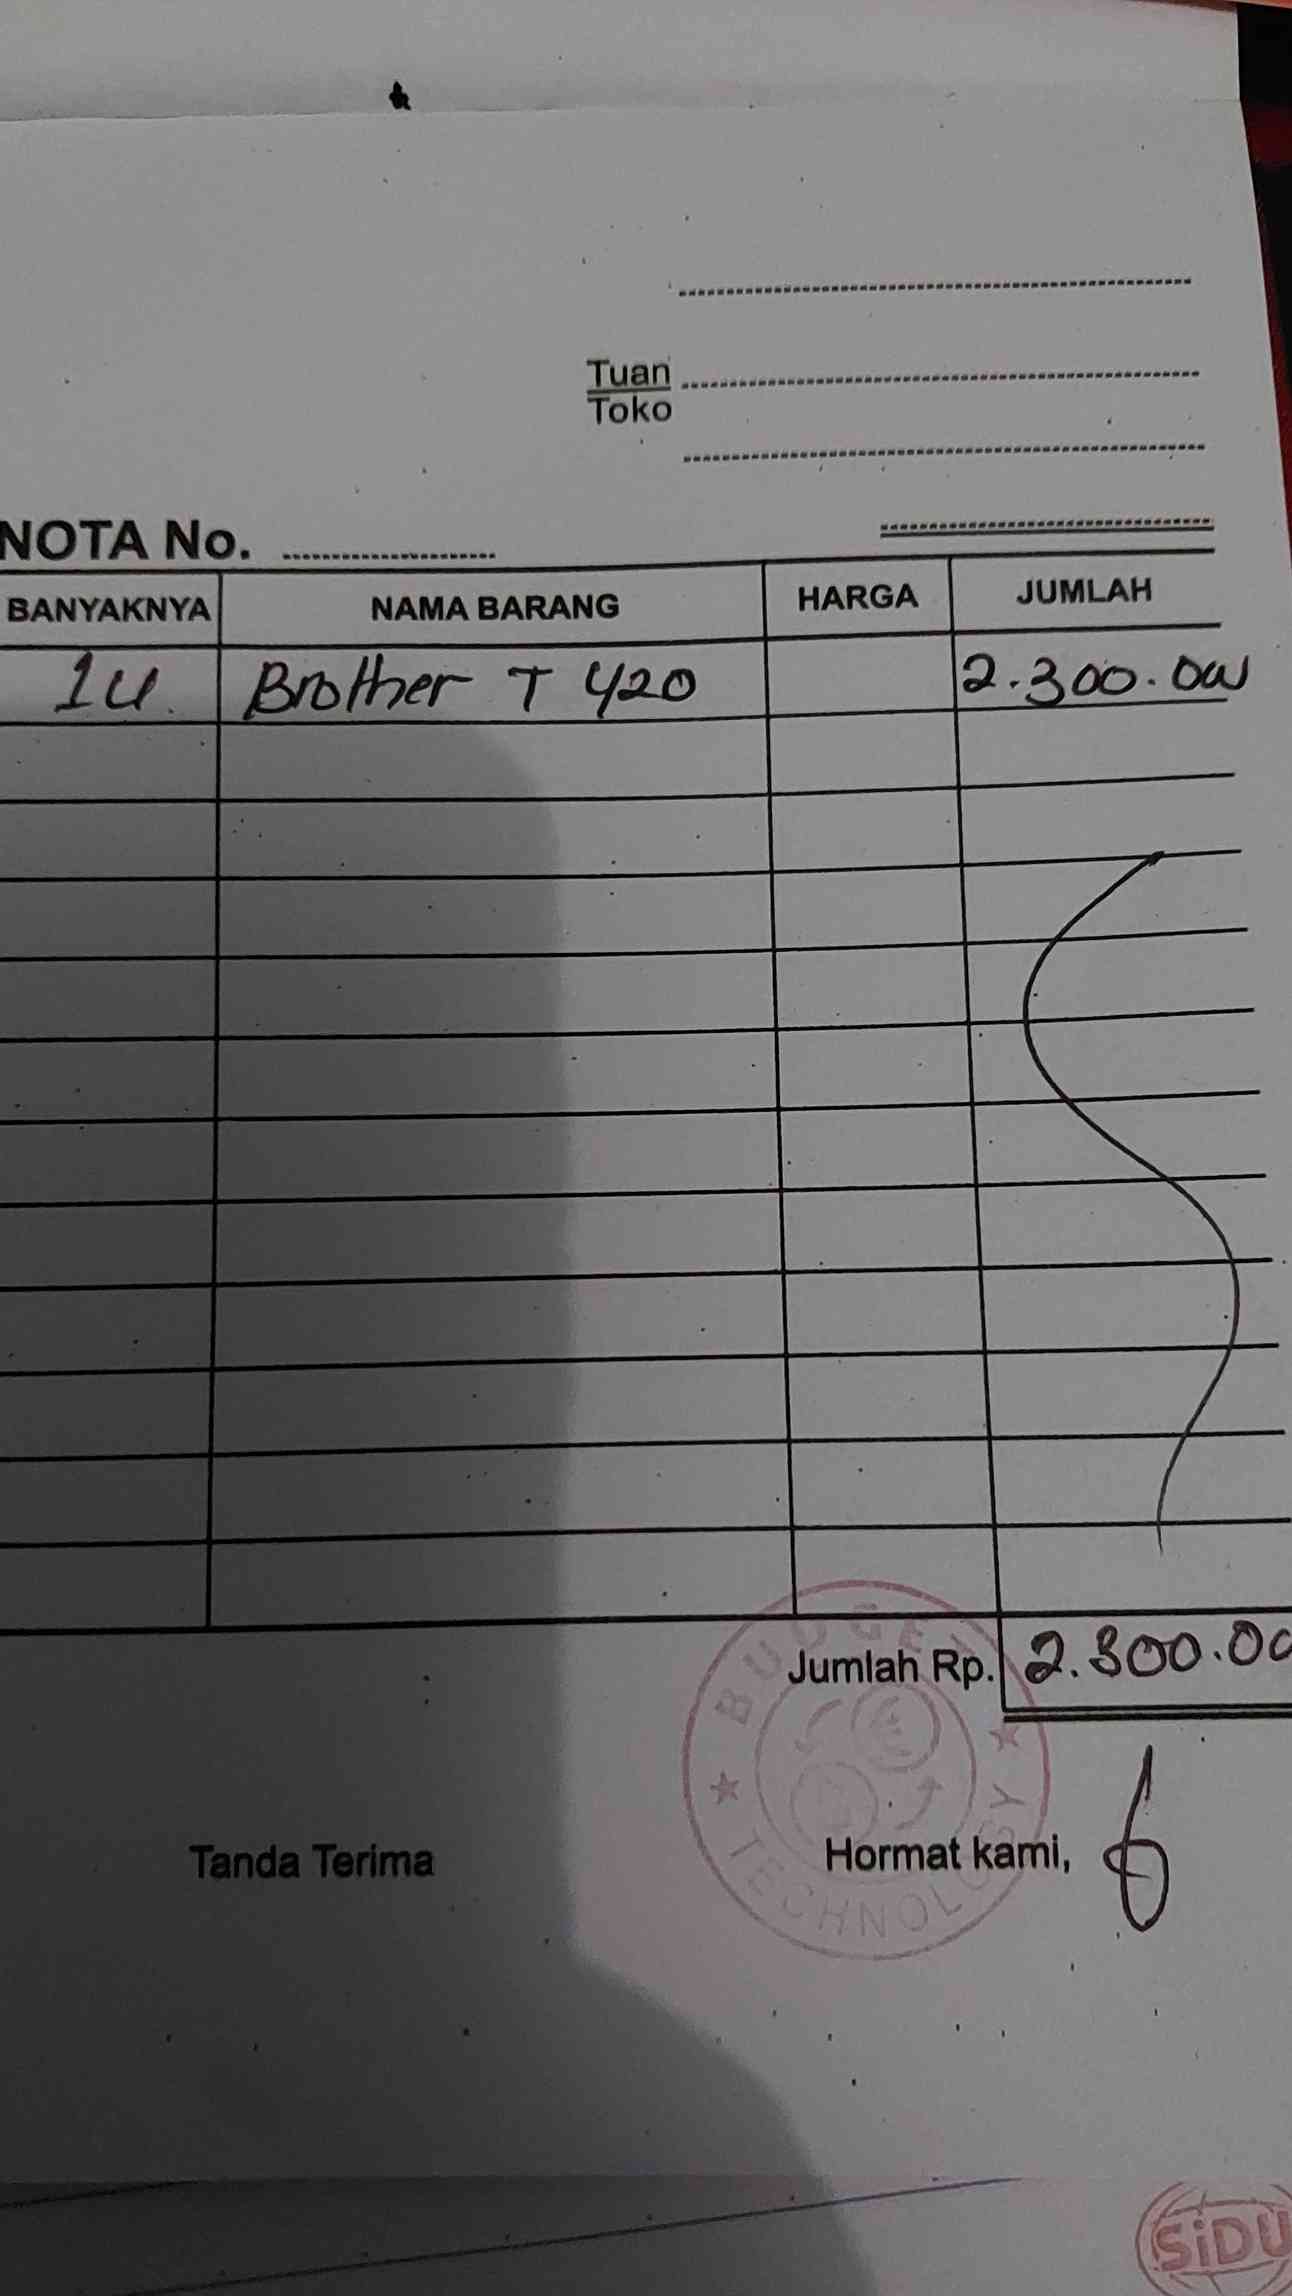 Tuan
Toko
NOTA No.
BANYAKNYA NAMA BARANG HARGA JUMLAH
1 U. Brother T 420 2.300.000
Jumlah Rp. 2.300.00
BUDGET
TECHNOLOGY
Tanda Terima Hormat kami,
SiDU